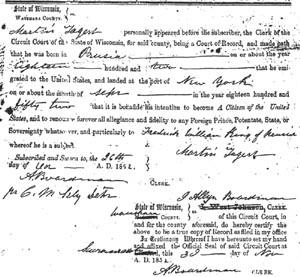 State of Wisconsin,
Waushara County.
Martin Tagert personally appeared before the subscriber, the Clerk of the
Circuit Court of the State of Wisconsin, for said county, being a Court of Record, and made oath
that he was born in Prusia on or about the year
Eighteen hundred and two that he emi-
grated to the United States, and landed at the port of New York
on or about the month of Sept in the year eighteen hundred and
fifty two that it is bonafide his intention to become A Citizen of the United
States, and to renounce forever all allegiance and fidelity to any Foreign Prince, Potentate, State, or
Sovereignty whatever, and particularly to Frederick William King of Prusia
whereof he is a subject.
Martin Tagert
Subscribed and Sworn to the 26th
day of Nov A. D. 185
A Boardman CLERK.
per
State of Wisconsin, I Allyn Boardman CLERK
County. of this Circuit Court, in
and for the county aforesaid, do hereby certify the above
to be a true copy of Record as filed in my office
In Testimony Whereof I have hereunto set my hand
and affixed the Official Seal of said Circuit Court at
this day of Nov
A. D. 185
A Boardman
CLERK.